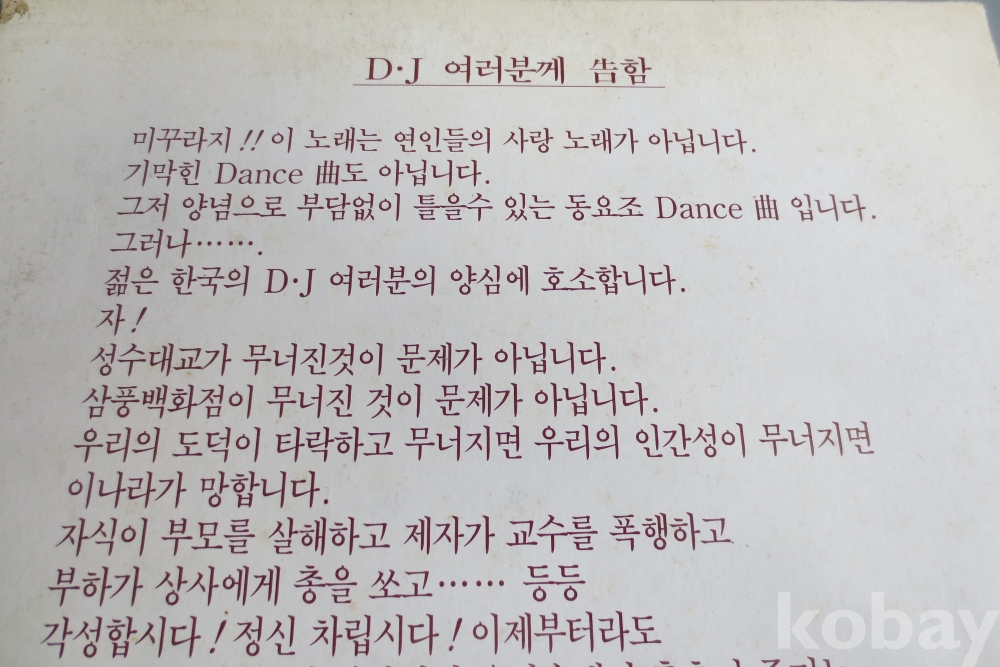 D·J 여러분께 告함
미꾸라지!! 이 노래는 연인들의 사랑 노래가 아닙니다.
기막힌 Dance 曲도 아닙니다.
그저 양념으로 부담없이 틀을수 있는 동요조 Dance 曲 입니다.
그러나…….
젊은 한국의 D·J 여러분의 양심에 호소합니다.
자!
성수대교가 무너진것이 문제가 아닙니다.
삼풍백화점이 무너진 것이 문제가 아닙니다.
우리의 도덕이 타락하고 무너지면 우리의 인간성이 무너지면
이나라가 망합니다.
자식이 부모를 살해하고 제자가 교수를 폭행하고
부하가 상사에게 총을 쏘고…… 등등
각성합시다! 정신 차립시다! 이제부터라도
kobay